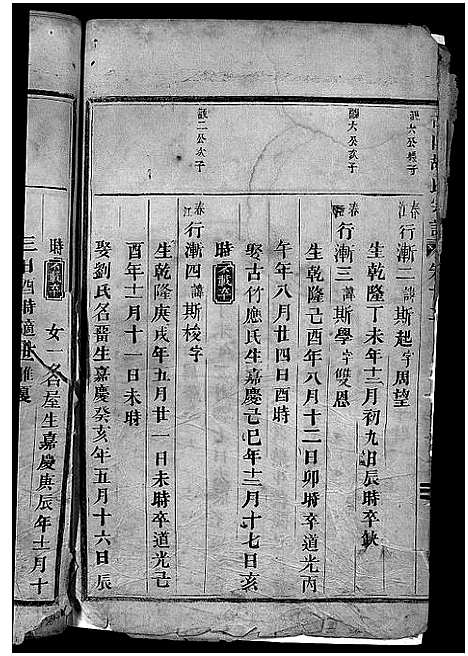 六公長子
春江行漸二諱斯起字周望
生乾隆丁未年十二月初九日辰時卒缺
六公次子
春江行漸三諱斯學字雙恩
生乾隆己酉年八月十二日卯時卒道光丙
午年八月廿四日酉時
娶古竹應氏生嘉慶己巳年十二月十七日亥
時
二公次子
春江行漸四諱斯梭字
生乾隆庚戌年五月廿一日未時卒道光己
酉年十一月十一日未時
娶劉氏名晉生嘉慶癸亥年五月十六日辰
時
女一名屋生嘉慶庚辰年十一月十
三日酉時適